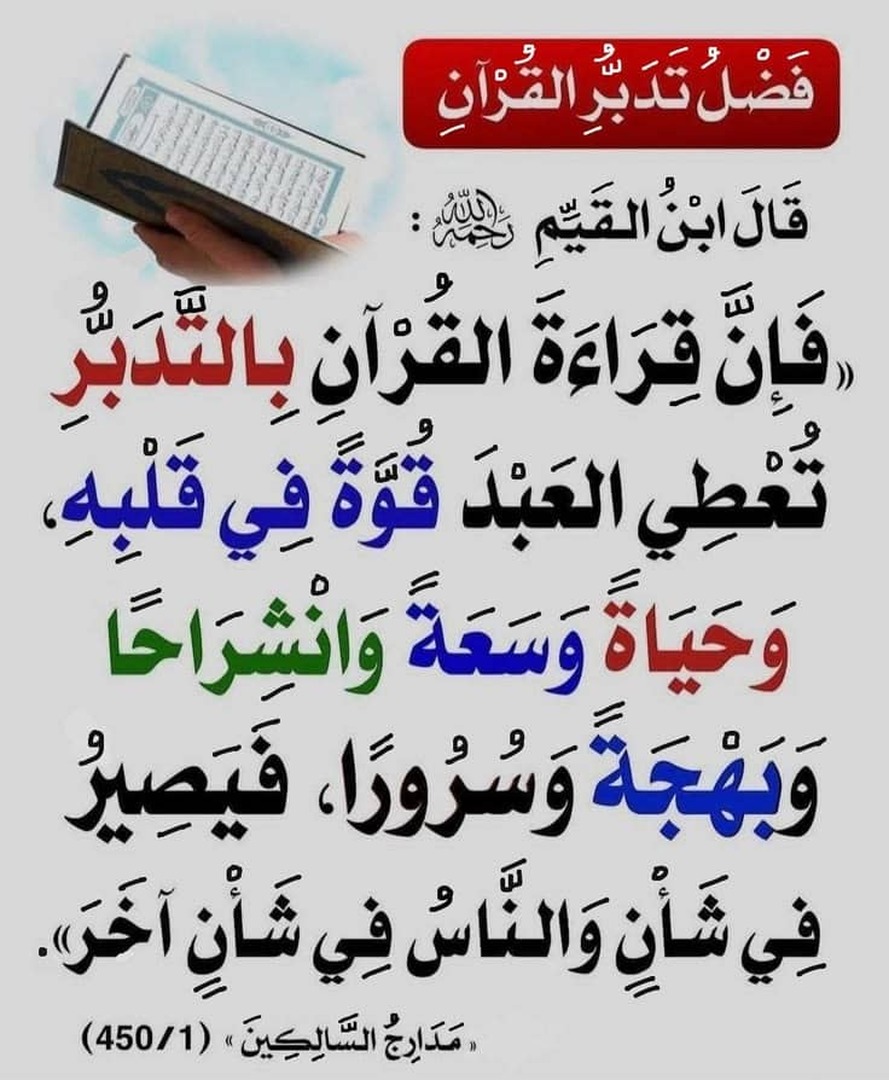 فَضْلُ تَدَبُّرِ القُرْآنِ
قَالَ ابْنُ القَيِّمِ رَحِمَهُ اللَّهُ :
«فَإِنَّ قِرَاءَةَ القُرْآنِ بِالتَّدَبُّرِ
تُعْطِي العَبْدَ قُوَّةً فِي قَلْبِهِ،
وَحَيَاةً وَسَعَةً وَانْشِرَاحًا
وَبَهْجَةً وَسُرُورًا، فَيَصِيرُ
فِي شَأْنٍ وَالنَّاسُ فِي شَأْنٍ آخَرَ».
« مَدَارِجُ السَّالِكِينَ » (450/1)